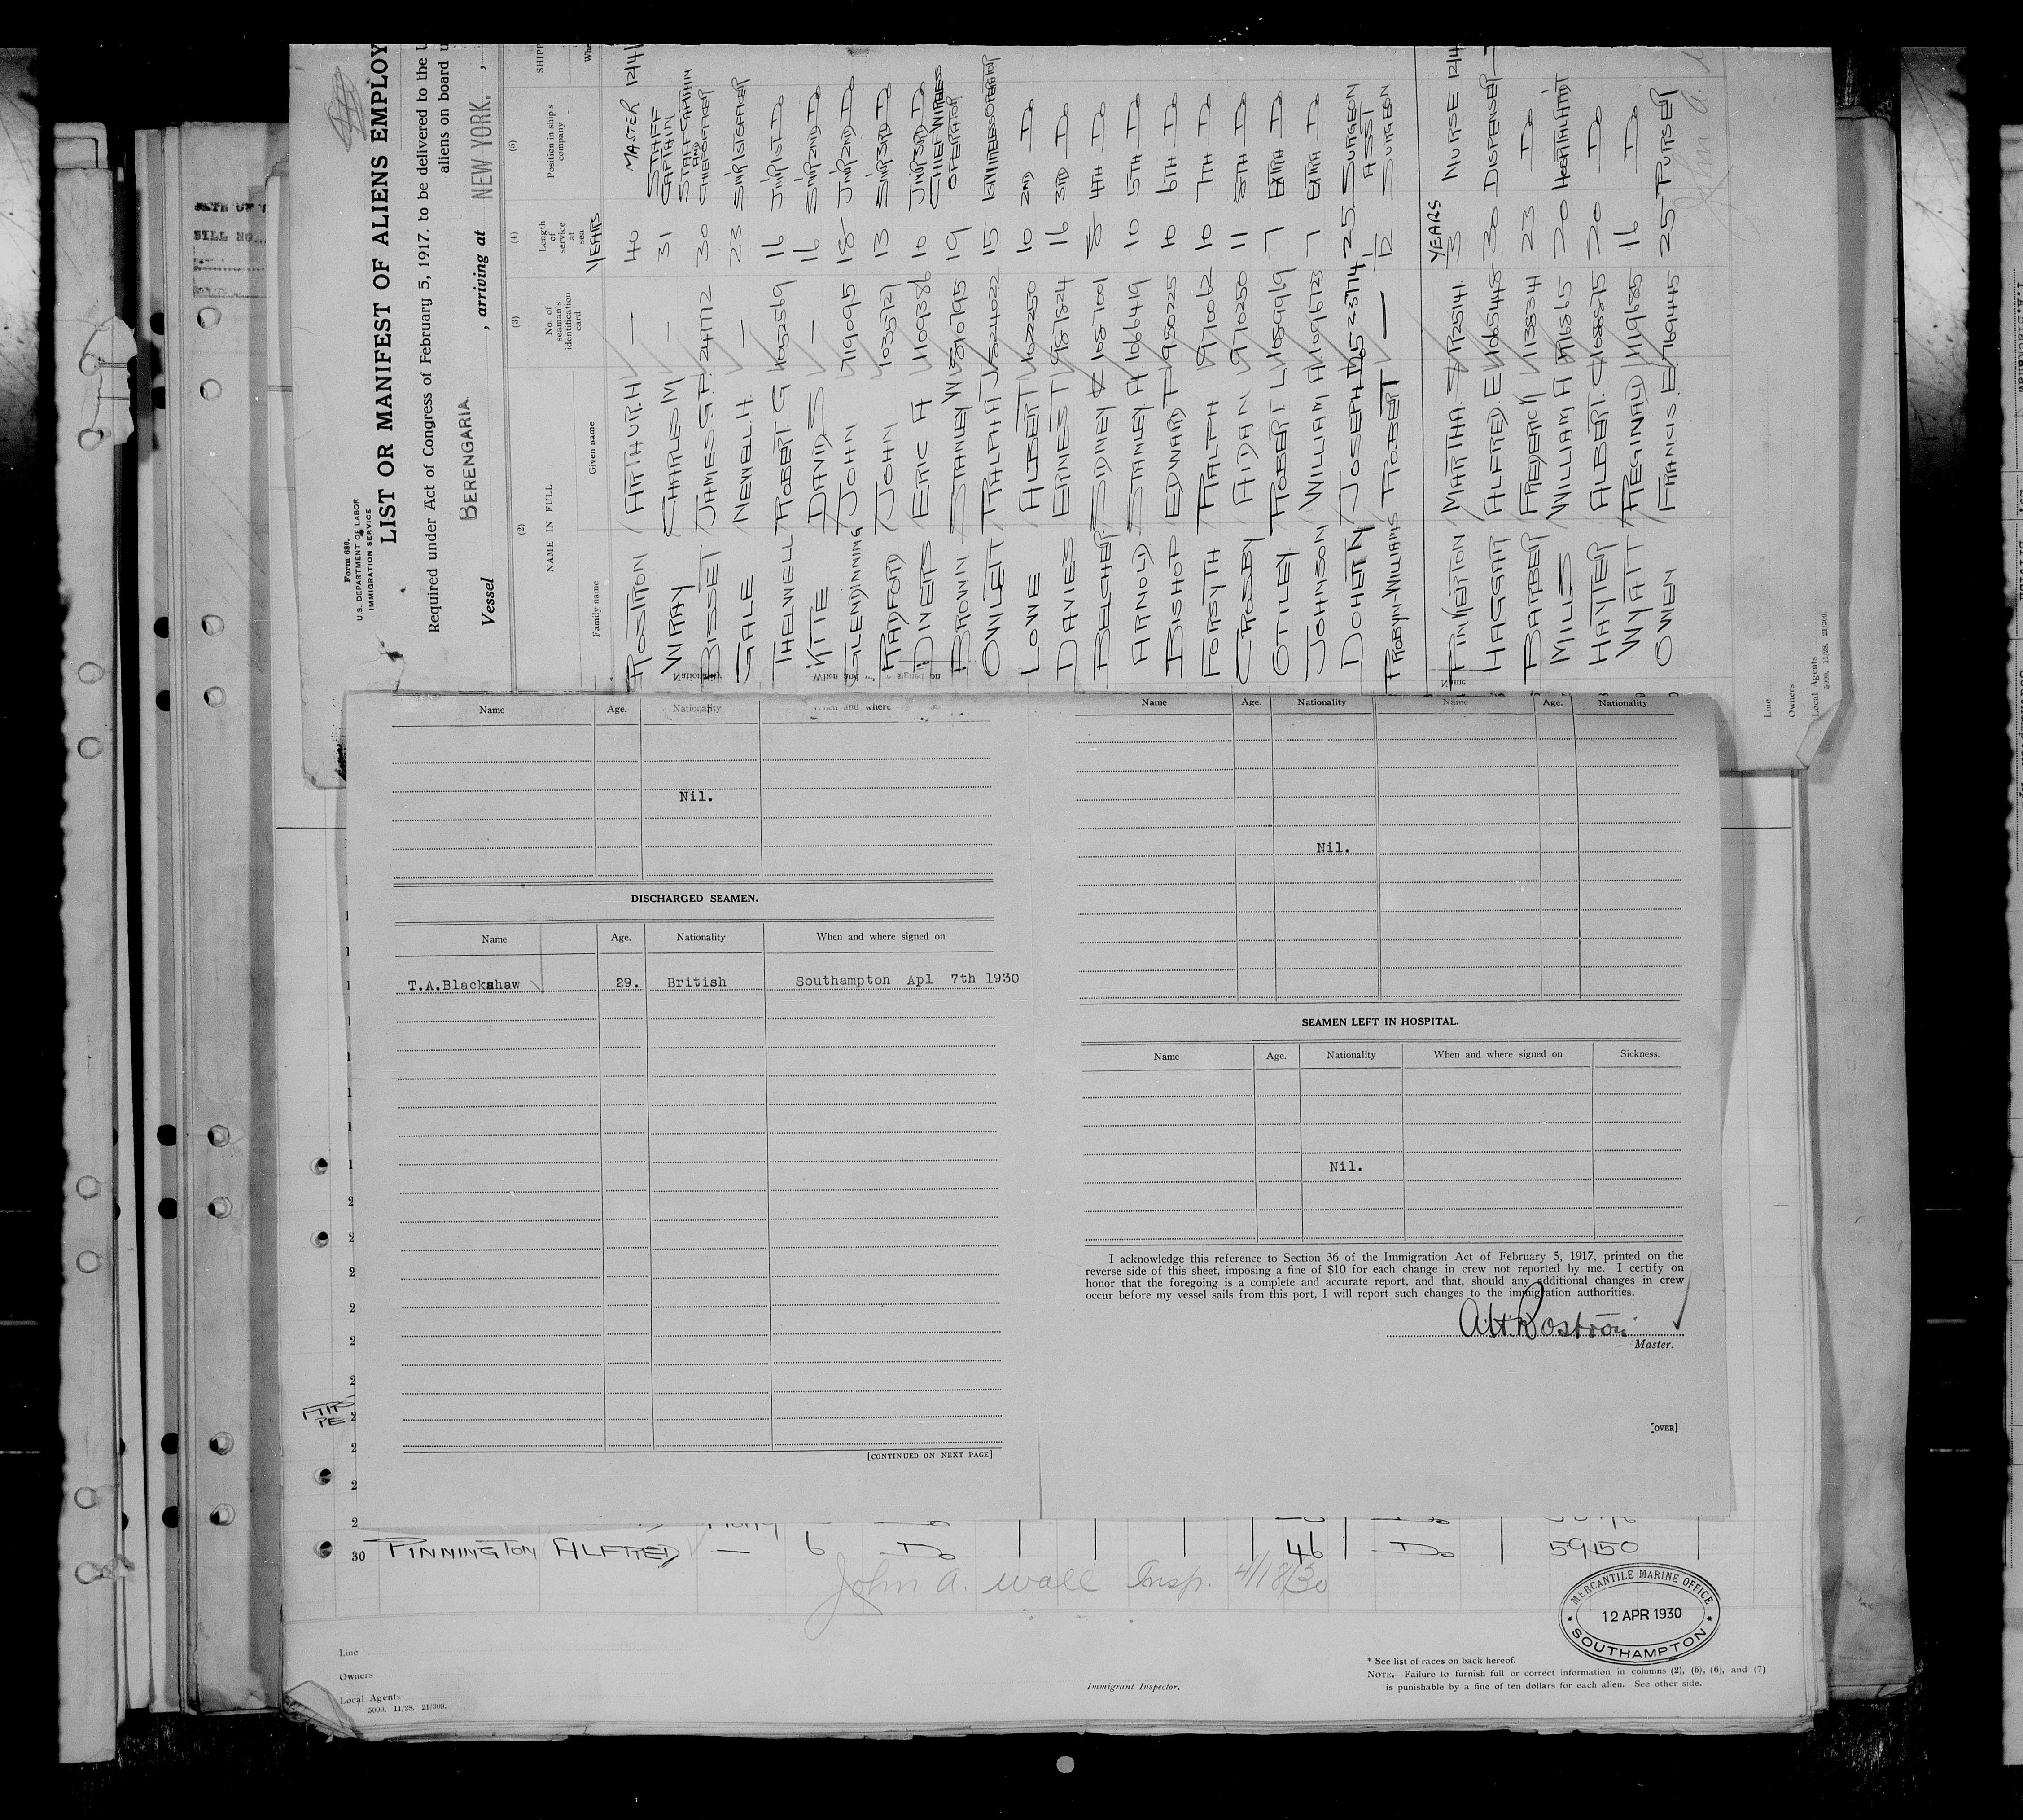 Form 680.
U.S. DEPARTMENT OF LABOR
IMMIGRATION SERVICE
LIST OR MANIFEST OF ALIENS EMPLOY
Required under Act of Congress of February 5, 1917, to be delivered to the U
aliens on board u
Vessel BERENGARIA , arriving at NEW YORK. ,
(2) (3) (4) (5)
NAME IN FULL
Family name Given name No. of seaman's identification card Length of service at sea Position in ship's company SHIPP Whe
YEARS
ROSTRON ARTHUR.H — 40 MASTER 12/4
WRAY CHARLES M — 31 STAFF CAPTAIN
BISSET JAMES G.P. 24772 30 STAFF CAPTAIN AND CHIEF OFFICER
GALE NEWEL.H. — 23 SNR 1ST OFFICER
THELWELL ROBERT. G 1052569 16 JNR 1ST Do
KITTE DAVID S — 16 SNR 2ND Do
GLENDINNING JOHN 719095 18 JNR 2ND Do
RADFORD JOHN 1035729 13 SNR 3RD Do
DIVERS ERIC A 1109386 10 JNR 3RD Do
BROWN STANLEY W 590795 19 CHIEF WIRELESS OPERATOR
OWLETT RALPH A J 524022 15 1ST WIRELESS OPERATOR
LOWE ALBERT 1022250 10 2ND Do
DAVIES ERNEST 987824 16 3RD Do
BELCHER SIDNEY 1087001 8 4TH Do
ARNOLD STANLEY. A 1066419 10 5TH Do
BISHOP EDWARD T 950225 10 6TH Do
FORSYTH RALPH 970062 10 7TH Do
CROSBY AIDAN 970250 11 8TH Do
OTTLEY ROBERT. L 1089969 7 EXTRA Do
JOHNSON WILLIAM A 1096723 7 EXTRA Do
DOHERTY JOSEPH D 523374 25 SURGEON
PROBYN-WILLIAMS ROBERT — 12 ASST SURGEON
YEARS
PINKERTON MARTHA. 1125141 3 NURSE 12/4
HAGGAR ALFRED. E 1065445 30 DISPENSER
BARBER FREDERICK 1138341 23 Do
MILLS WILLIAM A 711565 20 HOSPITAL ATTDT
HAYTER ALBERT. C 1088575 20 Do
WYATT REGINALD 1119685 16 Do
OWEN FRANCIS. E 769445 25 PURSER
John A.
Line
Owners
Local Agents
5000. 11/28. 21/309.
Name Age. Nationality When and where
Nil.
DISCHARGED SEAMEN.
Name Age. Nationality When and where signed on
T.A.Blackshaw 29. British Southampton Apl 7th 1930
[CONTINUED ON NEXT PAGE]
Name Age. Nationality Name Age. Nationality
Nil.
SEAMEN LEFT IN HOSPITAL.
Name Age. Nationality When and where signed on Sickness.
Nil.
I acknowledge this reference to Section 36 of the Immigration Act of February 5, 1917, printed on the
reverse side of this sheet, imposing a fine of $10 for each change in crew not reported by me. I certify on
honor that the foregoing is a complete and accurate report, and that, should any additional changes in crew
occur before my vessel sails from this port, I will report such changes to the immigration authorities.
A.H.Rostron
Master.
[OVER]
30 PINNINGTON ALFRED — 6 Do 46 Do 59150
John A. Wall Insp. 4/18/30
MERCANTILE MARINE OFFICE
12 APR 1930
SOUTHAMPTON
Line
Owners
Local Agents
5000. 11/28. 21/309.
Immigrant Inspector.
* See list of races on back hereof.
NOTE.—Failure to furnish full or correct information in columns (2), (5), (6), and (7)
is punishable by a fine of ten dollars for each alien. See other side.